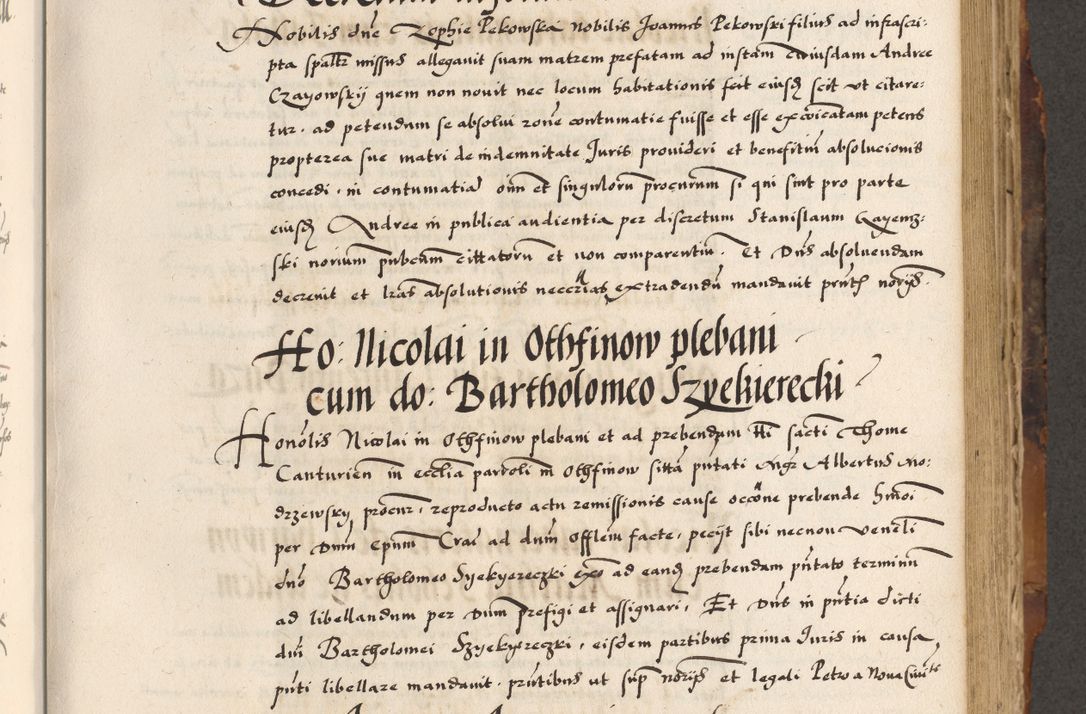 Nobilis dne Zophie Pekowska nobilis Joannes Pekowski filius ad infrascri:
pta spaltr missus allegauit suam matrem prefatam ad instam cuiusdam Andree
Czayowskij quem non nouit nec locum habitationis scit eiusd scit ut citare:
tur. ad petendum se absolui rone contumatie fuisse et esse excoicatam petens
propterea sue matri de indemnitate Juris prouideri et benefitiu absolucionis
concedi, in contumatia oim et singuloru procurum si qui sint pro parte
eiusd Andree in publica audientia per discretum Stanislaum Gayews:
ski norium pubcum cittatoru et non comparentiu. Et Dns absoluendam
decreuit et lras absolutionis neccrias extradendu mandauit pnth noryis.
Ho: Nicolai in Othfinow plebani
cum do: Bartholomeo Szyekierecki
Honolis Nicolai in Othfinow plebani et ad prebendam tti sacti Thome
Canturien in ecclia parroli in Othfinow sitta pntati Mgr Albertus Mo:
drzewsky procur, reproducto actu remissionis cause occone prebende hmoi
per Dnm Epum Crac ad dnm Offlem facte, pecijt sibi necnon Venlli
dno Bartholomeo Syekyereczki exo ad eand prebendam pntato terminu
ad libellandum per Dnm prefigi et assignari, Et Dns in pntia dicti
dni Bartholomei Szyekyereczki, eisdem partibus prima Juris in causa
pnti libellare mandauit. pntibus ut sup noryis et legali Petro a Noua Ciuite